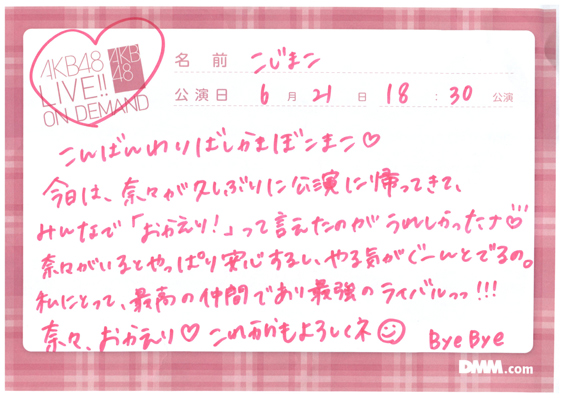 AKB48
LIVE!!
ON DEMAND
AKB
48
名前 こじまこ
公演日 6月21日 18:30 公演
こんばんわりばしかまぼこまこ♡
今日は、奈々が久しぶりに公演に帰ってきて、
みんなで「おかえり!」って言えたのがうれしかったナ♡
奈々がいるとやっぱり安心するし、やる気がぐーんとでるの。
私にとって、最高の仲間であり最強のライバルっっ!!!
奈々、おかえり♡ これからもよろしくネ☺ Bye Bye
DMM.com